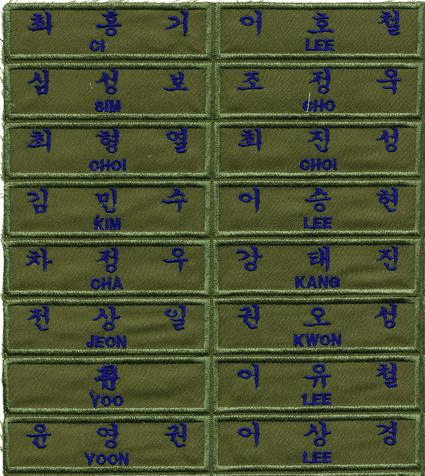 최 홍 기
이 호 철
LEE
심 성 보
SIM
조 정 욱
CHO
최 형 열
CHOI
최 진 성
CHOI
김 민 수
KIM
이 승 헌
LEE
차 정 우
CHA
강 태 진
KANG
전 상 일
JEON
권 오 성
KWON
YOO
이 유 철
LEE
윤 영 권
YOON
이 상 경
LEE